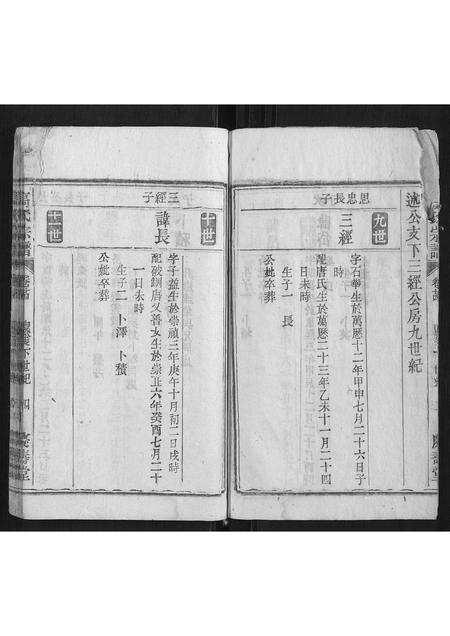 述公支下三經公房九世紀
九世
思忠長子
三經
字石華生於萬曆十二年甲申七月二十六日子
時
配唐氏生於萬曆二十三年乙未十一月二十四
日未時
生子一 長
公妣卒葬
十世
三經子
諱長
字子益生於崇禎三年庚午十月初二日戌時
配破銅唐又善女生於崇禎六年癸酉七月二十
一日未時
生子二 卜澤 卜積
公妣卒葬
十一世